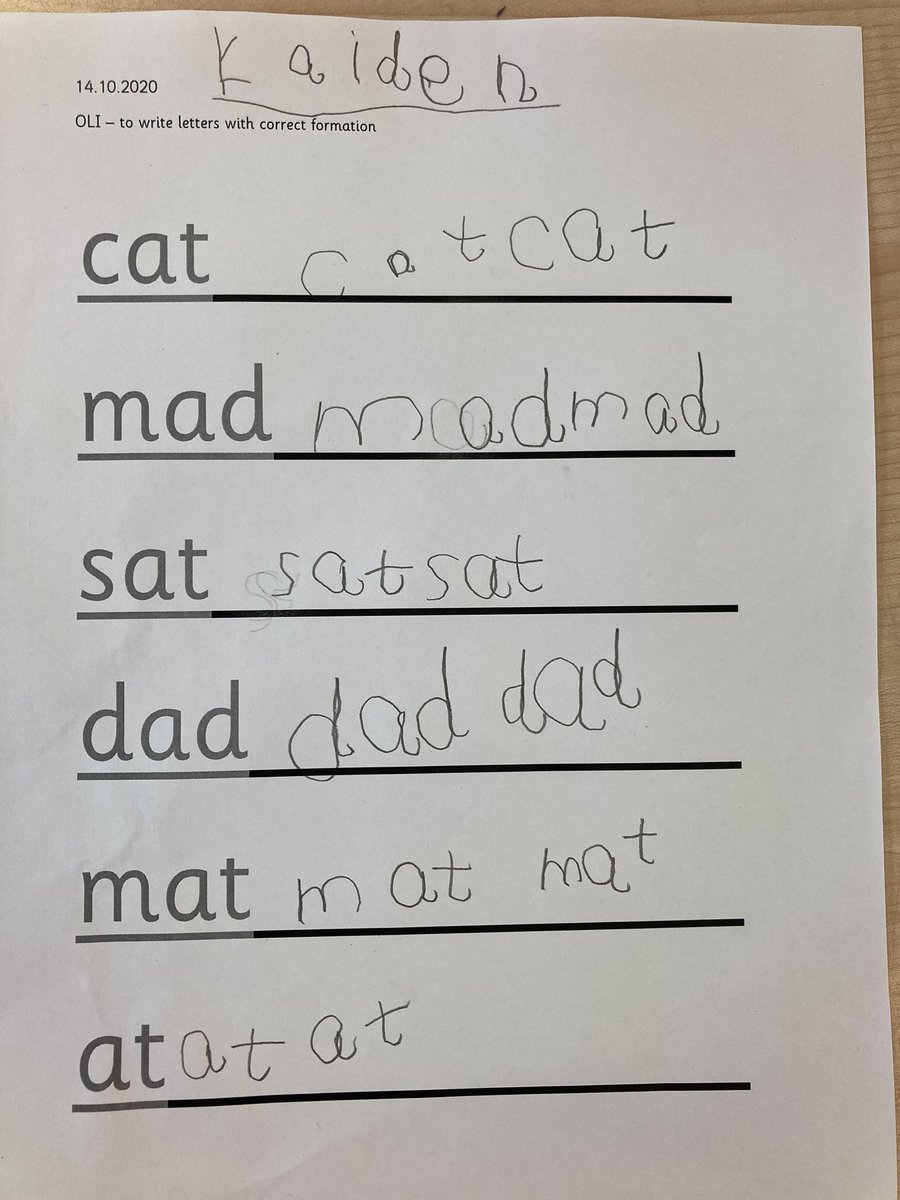 Kaiden
14.10.2020
OLI – to write letters with correct formation
cat cat cat
mad mad mad
sat sat sat
dad dad dad
mat mat mat
at at at